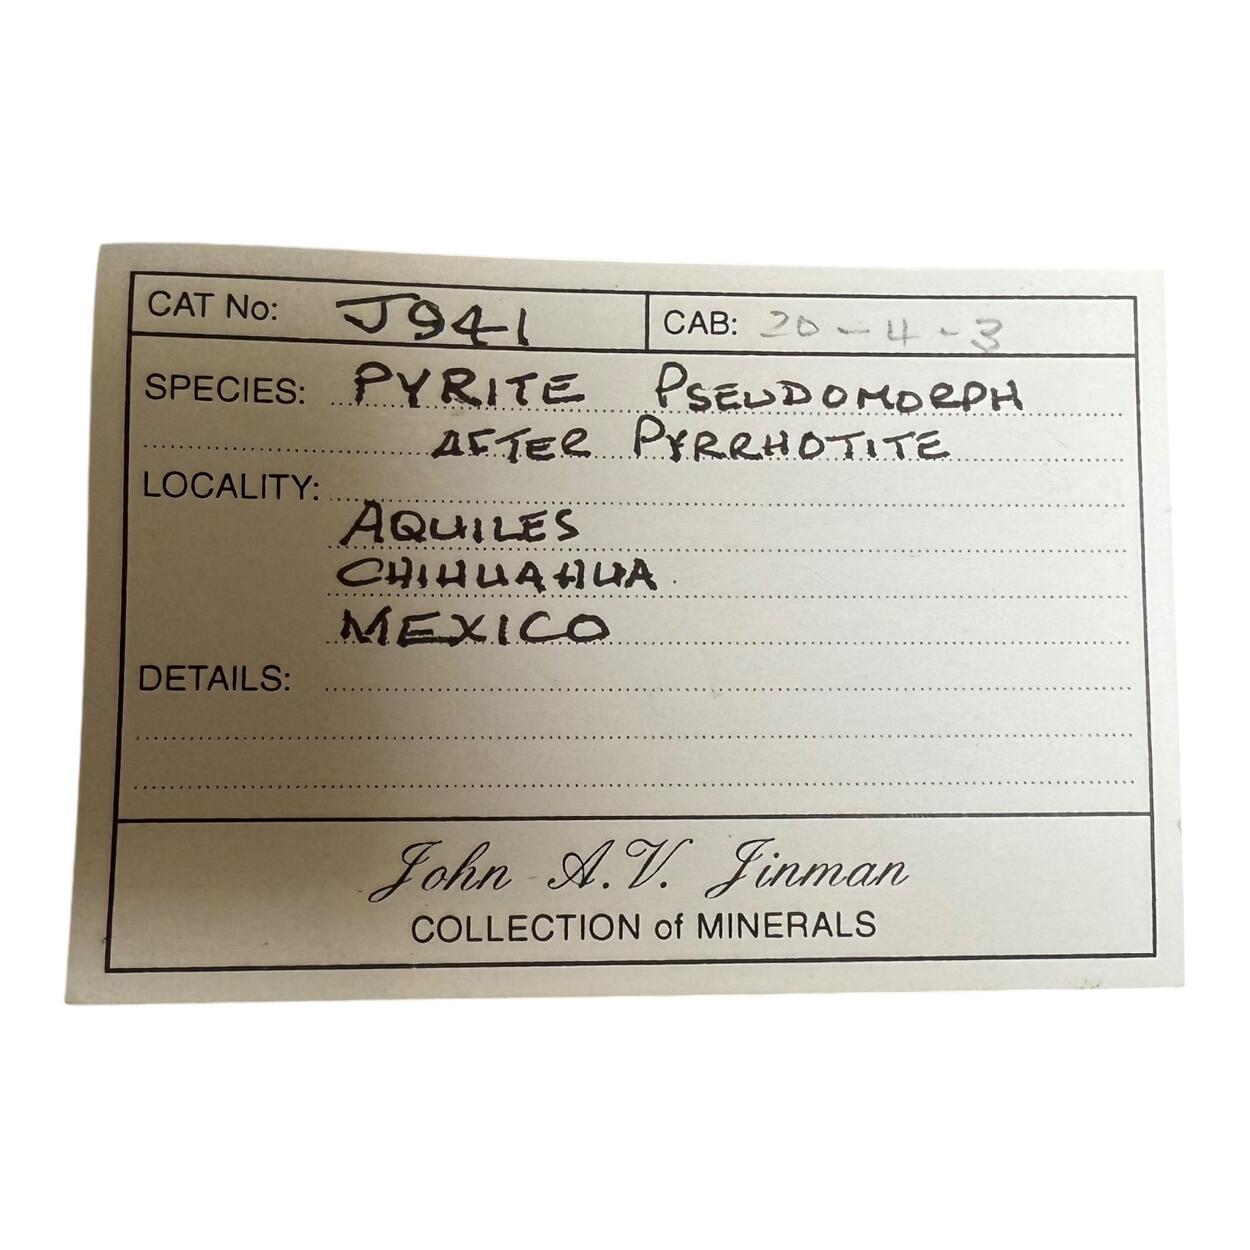 CAT No: J941 CAB: 20-4-3
SPECIES: PYRITE PSEUDOMORPH
AFTER PYRRHOTITE
LOCALITY:
AQUILES
CHIHUAHUA
MEXICO
DETAILS:
John A.V. Jinman
COLLECTION of MINERALS